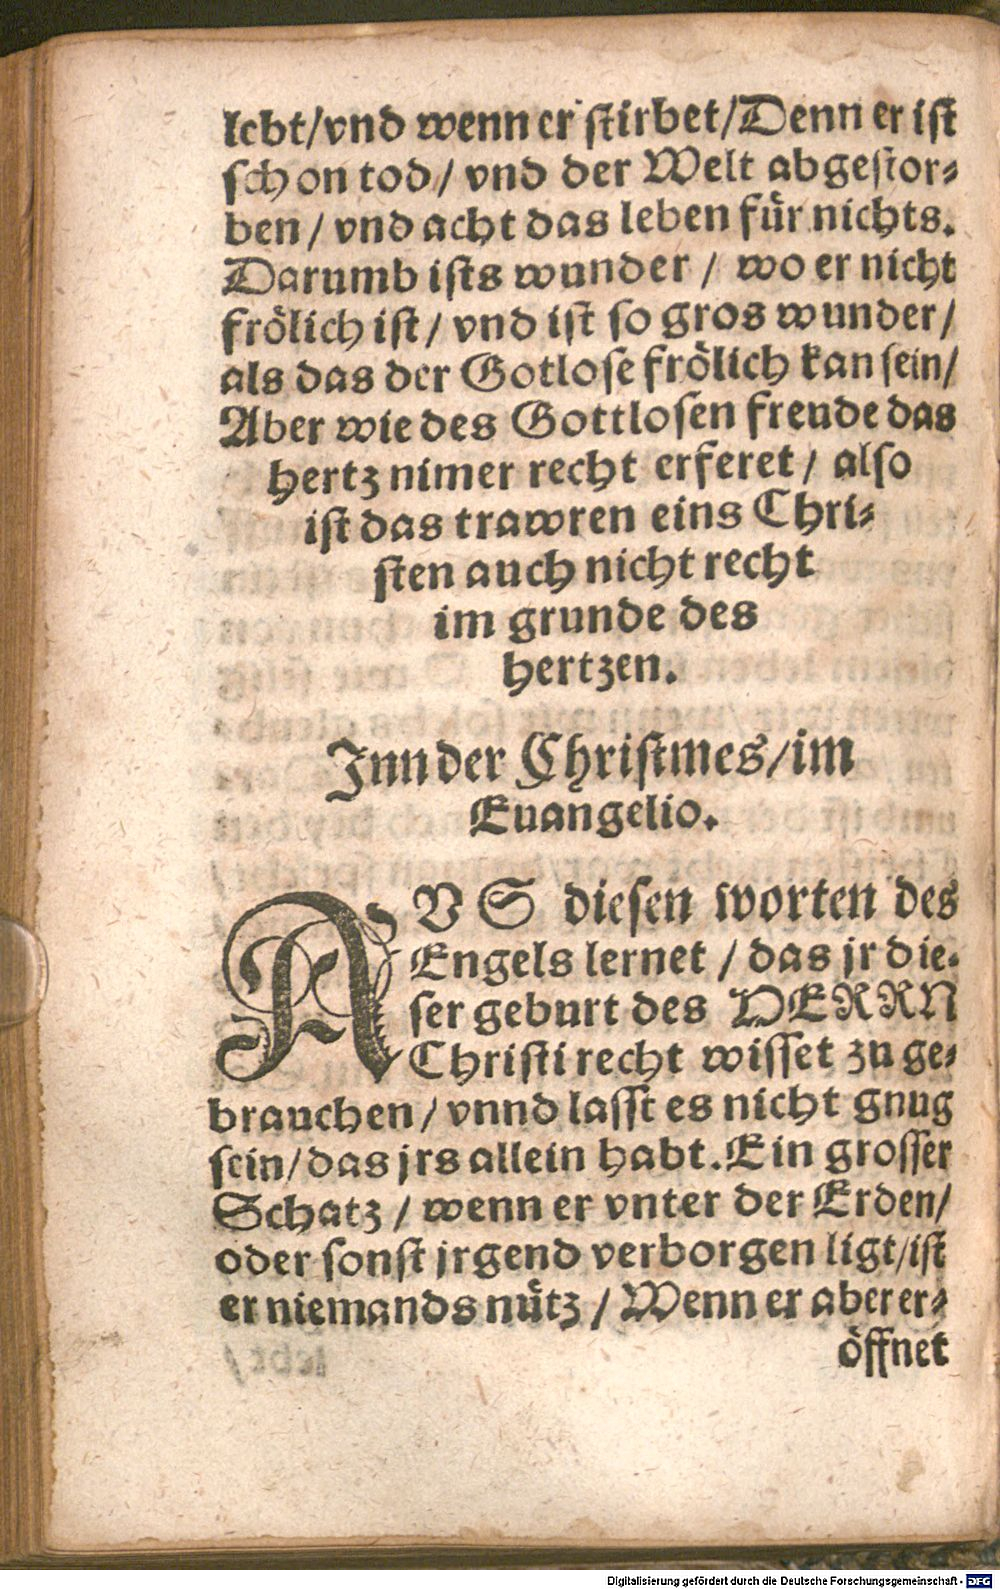 lebt/vnd wenn er stirbet/Denn er ist
schon tod/ vnd der Welt abgestor-
ben/ vnd acht das leben für nichts.
Darumb ists wunder/ wo er nicht
frölich ist/ vnd ist so gros wunder/
als das der Gotlose frölich kan sein/
Aber wie des Gottlosen freude das
hertz nimer recht erferet/ also
ist das trawren eins Chri-
sten auch nicht recht
im grunde des
hertzen.
Jnn der Christmes/im
Euangelio.
AVS diesen worten des
Engels lernet/ das jr die-
ser geburt des HERRN
Christi recht wisset zu ge-
brauchen/ vnnd lasst es nicht gnug
sein/das jrs allein habt. Ein grosser
Schatz/ wenn er vnter der Erden/
oder sonst jrgend verborgen ligt/ist
er niemands nütz/ Wenn er aber er-
öffnet
Digitalisierung gefördert durch die Deutsche Forschungsgemeinschaft - DFG